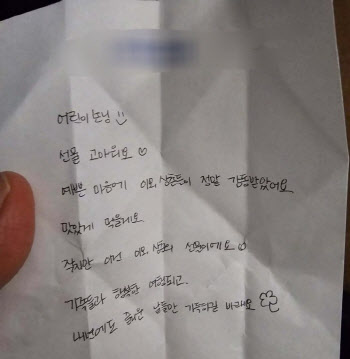 어린이손님
선물 고마워요
예쁜 마음에 이모, 삼촌들이 정말 감동받았어요
맛있게 먹을게요.
작지만 이건 이모, 삼촌의 선물이에요
가족들과 행복한 여행되고.
내년에도 즐거운 날들만 가득하길 바래요